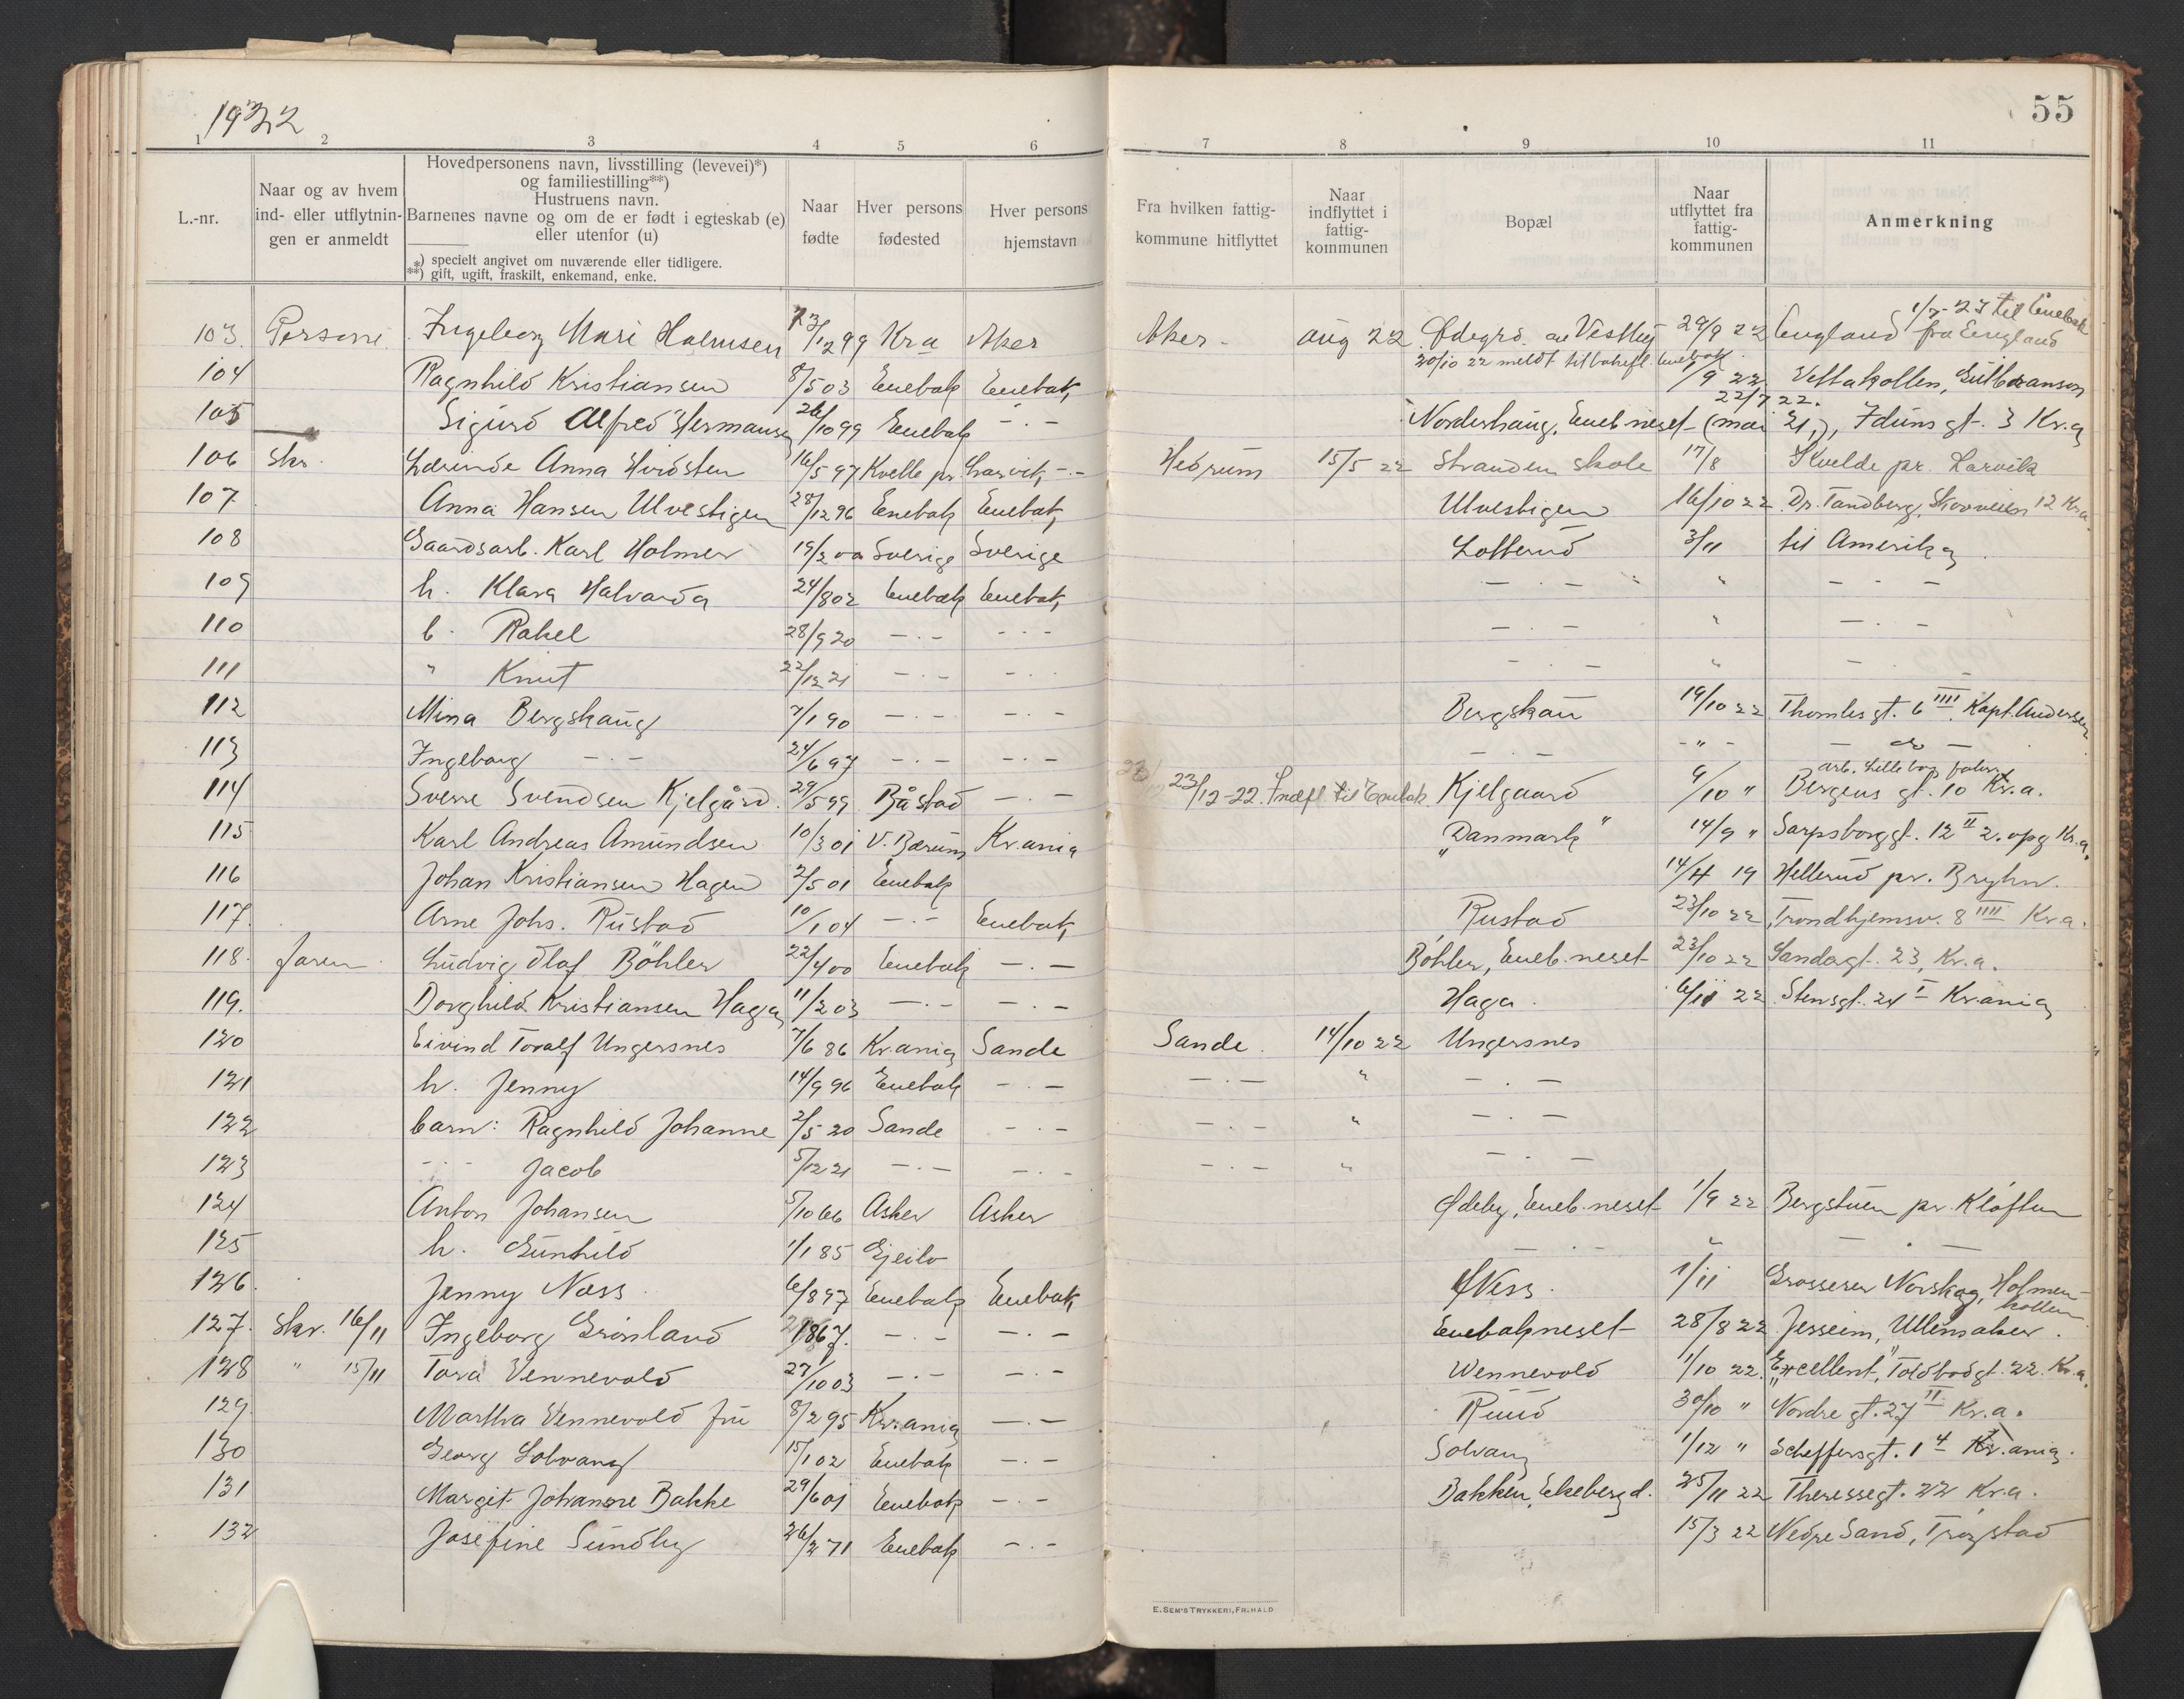 1922
55
1 2 3 4 5 6 7 8 9 10 11
L.-nr.
Naar og av hvem
ind- eller utflytnin-
gen er anmeldt
Hovedpersonens navn, livsstilling (levevei)*)
og familiestilling**)
Hustruens navn.
Barnenes navne og om de er født i egteskab (e)
eller utenfor (u)
*) specielt angivet om nuværende eller tidligere.
**) gift, ugift, fraskilt, enkemand, enke.
Naar
fødte
Hver persons
fødested
Hver persons
hjemstavn
Fra hvilken fattig-
kommune hitflyttet
Naar
indflyttet i
fattig-
kommunen
Bopæl
Naar
utflyttet fra
fattig-
kommunen
Anmerkning
1/7-23 til Enebak
103. Personl. Ingeborg Mari Halmsen 23/12 99 Kra Aker Aker - aug 22 Ødegrd. av Vestby 29/9 22 England fra England
20/10 22 meldt tilbakefl. Enebak
104 Ragnhild Kristiansen 8/5 03 Enebak Enebak 1/9 22 Vettakollen, Gulbranson
22/7 22.
105 Sigurd Alfred Hermansen 26/10 99 Enebak - . - Norderhaug, Eneb.neset (mai 21,), Iduns gt. 3 Kr.a
106 skr. Lærinde Anna Hvidsten 16/5 97 Kvelle pr. Larvik - . - Hedrum 15/5 22 Stranden skole 17/8 Kvelde pr. Larvik
107. Anna Hansen Ulvestigen 28/12 96 Enebak Enebak Ulvestigen 16/10 22 Dr. Tandberg, Skovveien 12 Kr.a.
108 Gaardsarb. Karl Holmer 19/2 00 Sverige Sverige Lotterud 3/11 til Amerika
109 h. Klara Halvarda 24/8 02 Enebak Enebak - . - " - . -
110 b. Rakel 28/9 20 - . - - . - - . - " - . -
111 " Knut 22/12 21 - . - - . - - . - " - . -
112 Mina Bergskaug 7/1 90 - . - - . - Bergskau 19/10 22 Thomles gt. 6 IIII Kapt. Andersen
113 Ingeborg - . - 24/6 97 - . - - . - - . - - " - - do -
arb. Lilleborg fabrr.
114 Sverre Svendsen Kjelgård. 29/5 99 Båstad - . - 23/12-22. Indfl. til Enebak Kjelgaard 9/10 " Bergens gt. 10 Kr.a.
115 Karl Andreas Amundsen 10/3 01 V. Bærum Kr.ania "Danmark" 14/9 " Sarpsborggt. 12 II 2. opg Kr.a.
116 Johan Kristiansen Hagen 2/5 01 Enebak 14/4 19 Hellerud pr. Bryhn.
117. Arne Johs. Rustad 10/1 04 - . - Enebak Rustad 23/10 22 Trondhjemsv. 8 IIII Kr.a.
118. faren Ludvig Olaf Böhler 22/4 00 Enebak - . - Böhler, Eneb.neset 23/10 22 Sandagt. 23, Kr.a.
119. Dorghild Kristiansen Haga 11/2 03 - . - - . - Haga. 6/11 22 Stensgt. 24 I Kr.ania
120 Eivind Toralf Ungersnes 7/6 86 Kr.ania Sande Sande. 14/10 22 Ungersnes
121 h. Jenny 14/9 96 Enebak - . - - . - " - . -
122 barn: Ragnhild Johanne 2/5 20 Sande - . - - . - " - . -
123 - . - Jacob 5/12 21 - . - - . - - . - " - . -
124 Anton Johansen 5/10 66 Asker Asker Ødeby, Eneb.neset 1/9 22 Bergstuen pr. Kløften
125 h. Gunhild 1/1 85 Gjeilo - . - " - . -
126. Jenny Næss. 6/8 97 Enebak Enebak Ness. 1/11 Grosserer Norskag, Holmen-
kollen
127. skr. 16/11 Ingeborg Grønland 1867. - . - - . - Enebakneset 28/8 22 Jesseim, Ullensaker.
128 " 15/11 Tora Vennevold 27/10 03 - . - - . - Wennevold 1/10 22. "Excellent", Toldbodgt. 22. Kr.a.
129. Martha Vennevold fru 8/2 95 Kr.ania - . - Ruud 30/10 " Nordre gt. 27 II Kr.a.
130 Georg Solvang 15/1 02 Enebak - . - Solvang 1/12 " Scheffersgt. 1 4 Kr.ania.
131 Margit Johanne Bakke 29/6 01 Enebak - . - Bakken, Ekebergd. 25/11 22 Theressegt. 22 Kr.a.
132 Josefine Sundby 26/2 71 Enebak - . - 15/3 22 Nedre Sand, Trøgstad
E. SEM'S TRYKKERI, FR.HALD